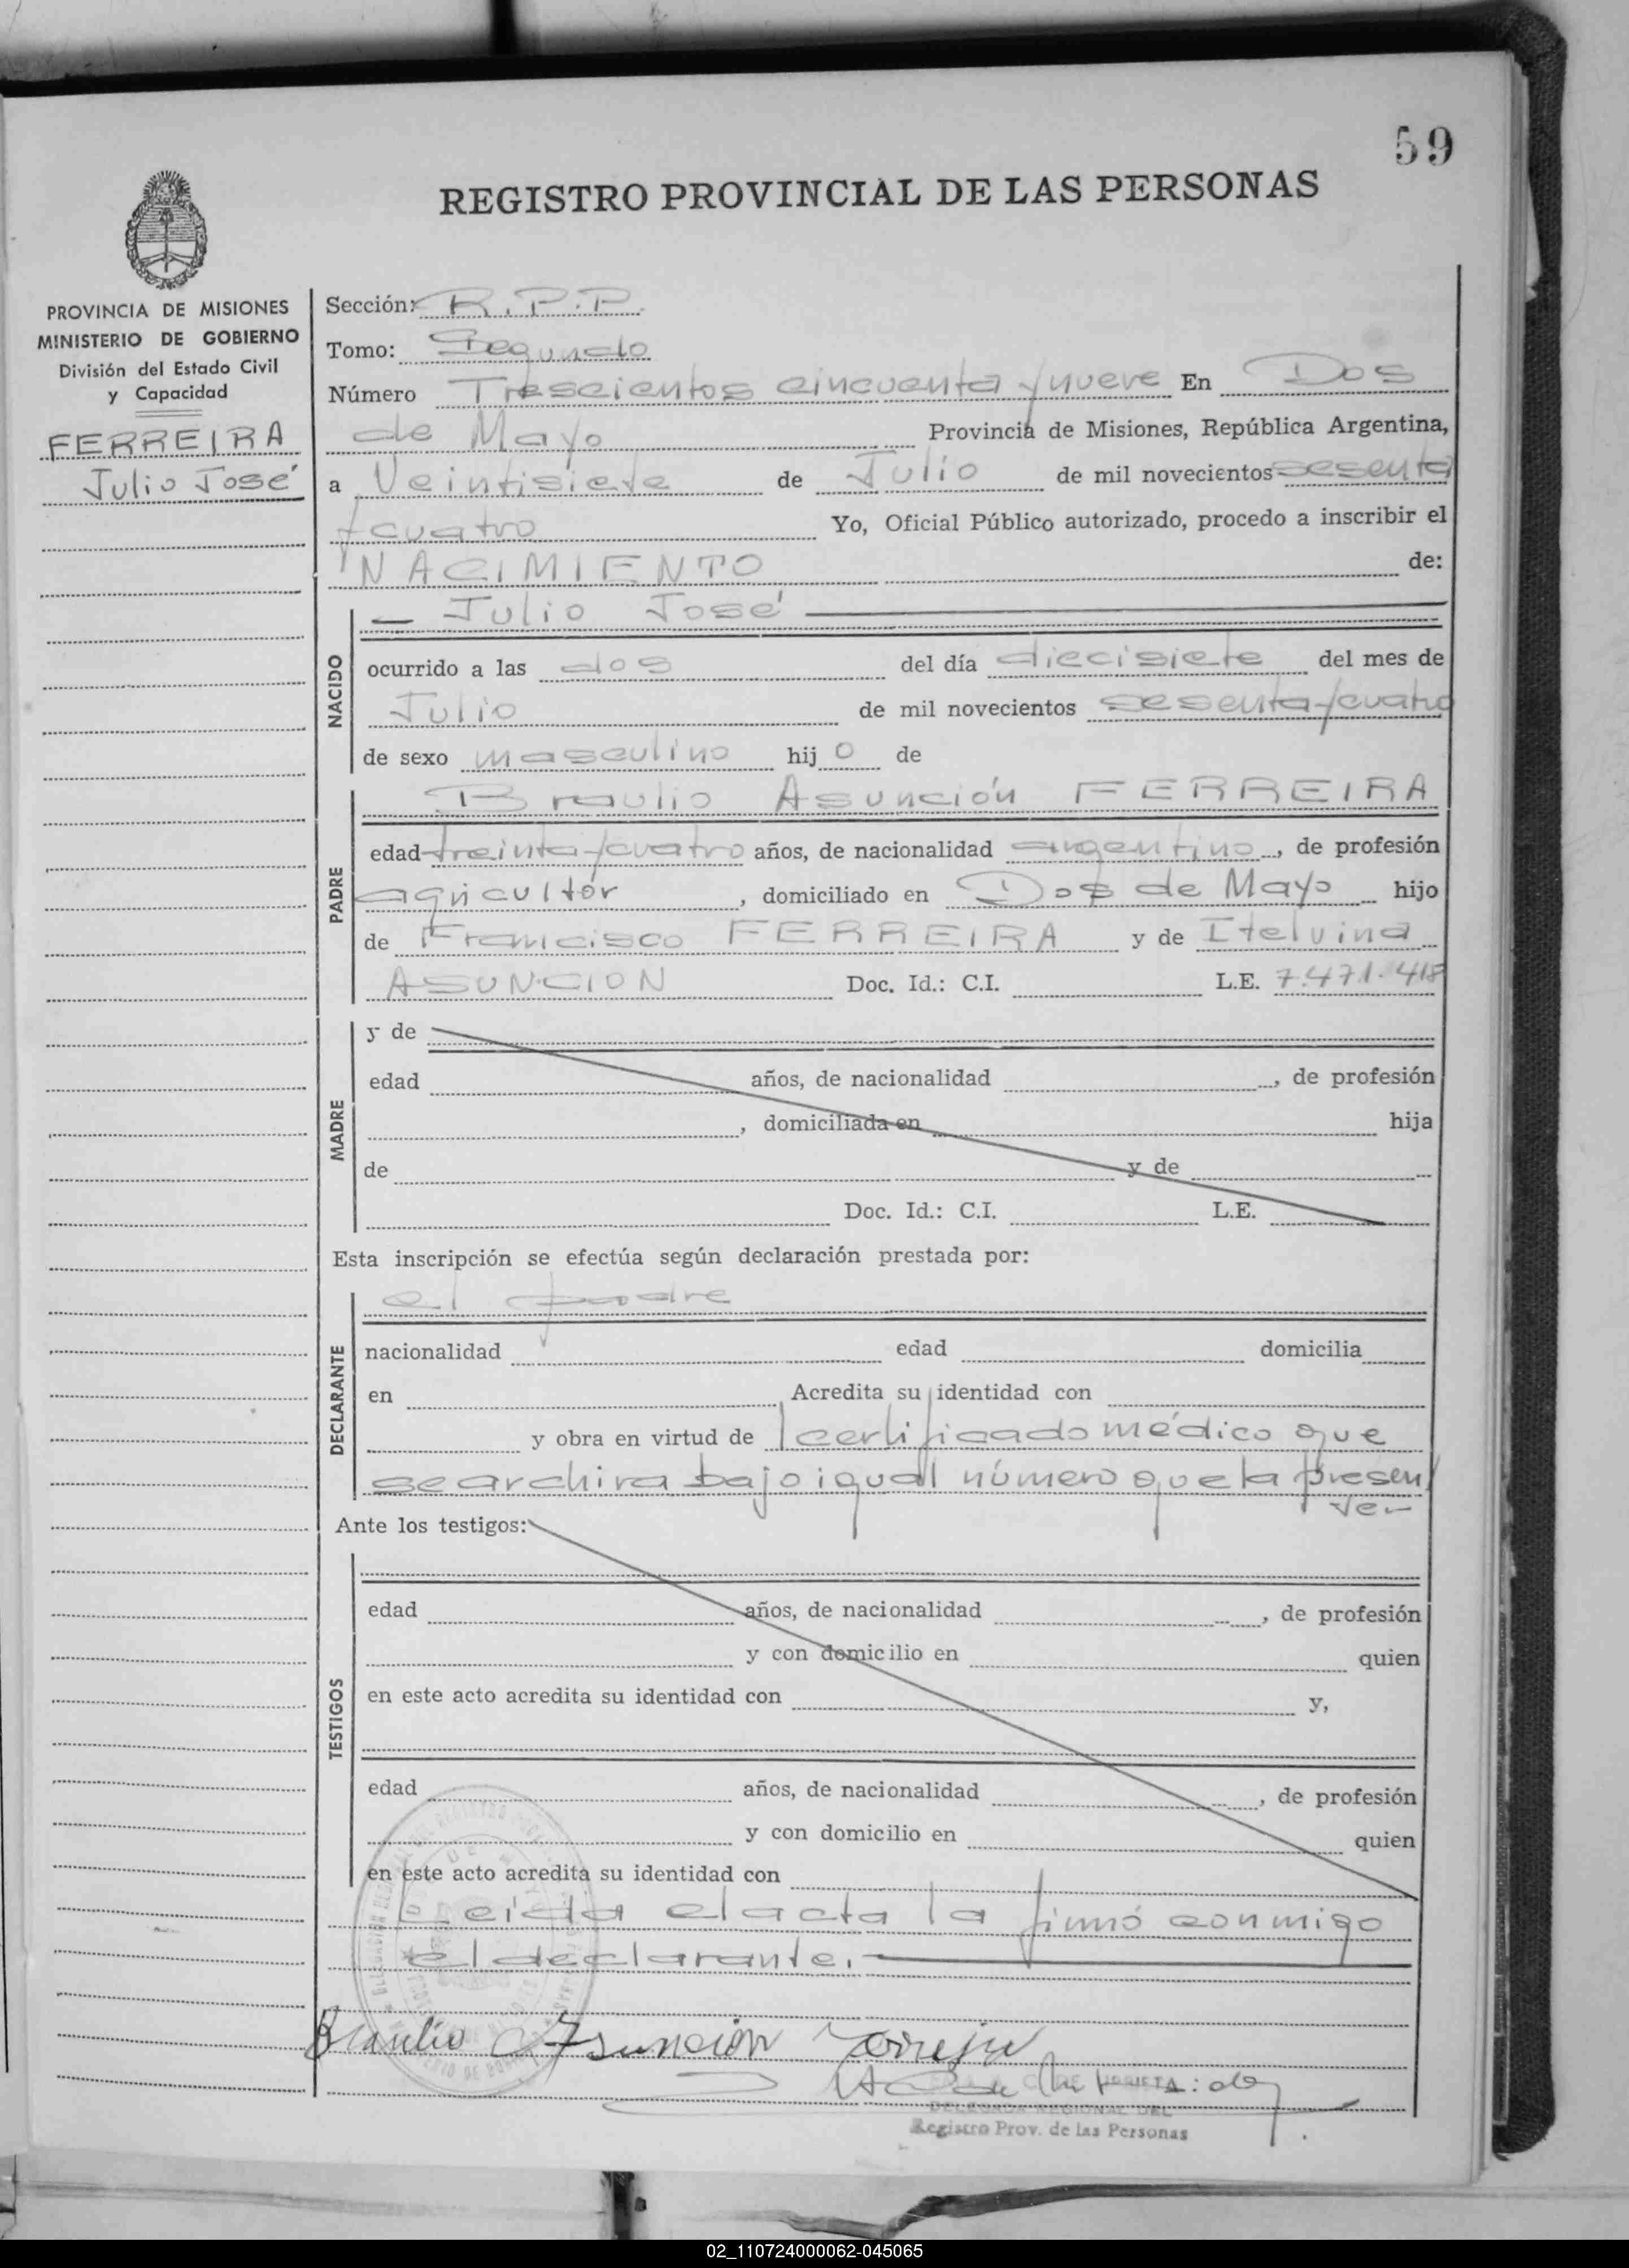 59
REGISTRO PROVINCIAL DE LAS PERSONAS
PROVINCIA DE MISIONES
MINISTERIO DE GOBIERNO
División del Estado Civil
y Capacidad
FERREIRA
Julio José
Sección: R.P.P.
Tomo: Segundo
Número Trescientos cincuenta y nueve En Dos
de Mayo Provincia de Misiones, República Argentina,
a Veintisiete de Julio de mil novecientos sesenta
y cuatro Yo, Oficial Público autorizado, procedo a inscribir el
NACIMIENTO de:
NACIDO
— Julio José
ocurrido a las dos del día diecisiete del mes de
Julio de mil novecientos sesenta y cuatro
de sexo masculino hijo de
PADRE
Braulio Asunción FERREIRA
edad treinta y cuatro años, de nacionalidad argentino, de profesión
agricultor, domiciliado en Dos de Mayo hijo
de Francisco FERREIRA y de Itelvina
ASUNCION Doc. Id.: C.I. L.E. 7.471.418
MADRE
y de
edad años, de nacionalidad , de profesión
, domiciliada en hija
de y de
Doc. Id.: C.I. L.E.
Esta inscripción se efectúa según declaración prestada por:
DECLARANTE
el padre
nacionalidad edad domicilia
en Acredita su identidad con
y obra en virtud de certificado médico que
se archiva bajo igual número que la presen
te.-
Ante los testigos:
TESTIGOS
edad años, de nacionalidad , de profesión
y con domicilio en quien
en este acto acredita su identidad con y,
edad años, de nacionalidad , de profesión
y con domicilio en quien
en este acto acredita su identidad con
Leída el acta la firmó conmigo
el declarante.
Braulio Asuncion
DELEGADA REGIONAL DEL
Registro Prov. de las Personas
02_110724000062-045065